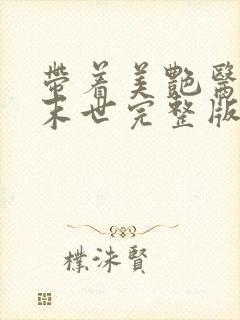 帶着美艷醫
末世完整版
樸洙賢